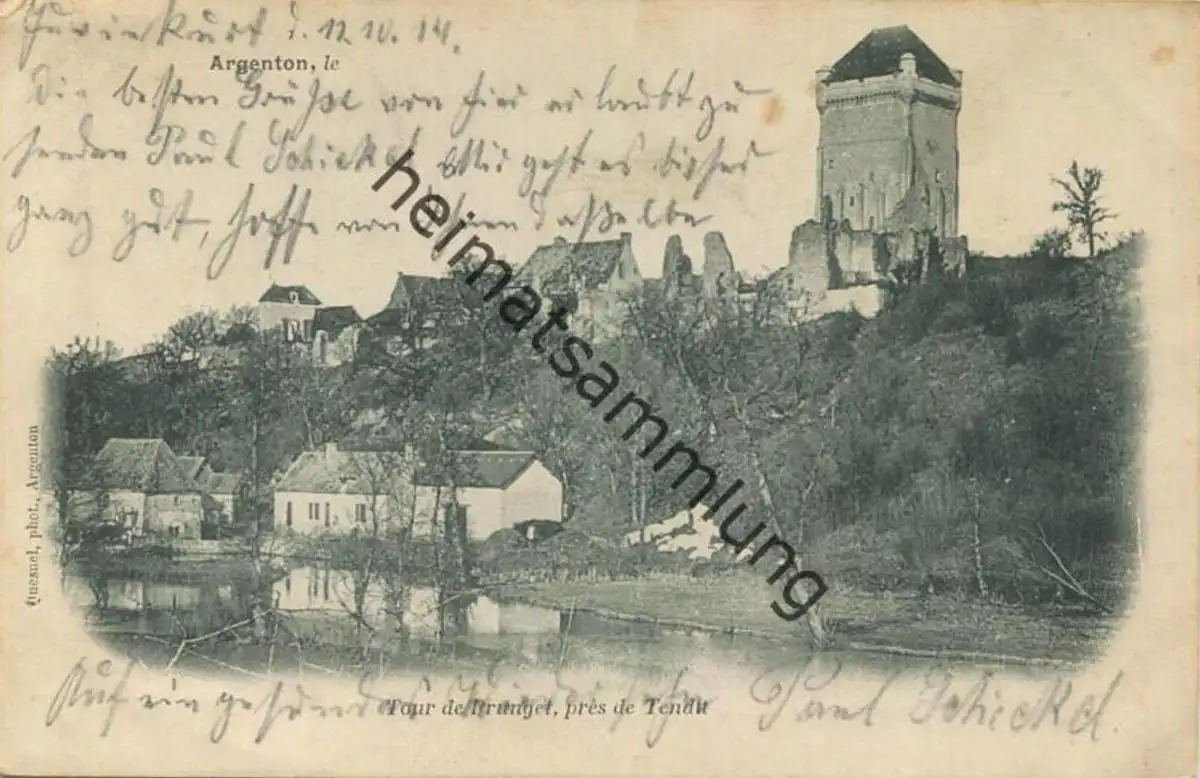 d. 12.10.14.
Argenton, le
Die besten Grüße von hier erlaubt zu
senden Paul Schickel Mir geht es bisher
ganz gut, hoffe von Ihnen daßelbe
heimatsammlung
Quesnel, phot., Argenton
Auf ein gesundes Wiedersehn Paul Schickel.
Tour de Prunget, près de Tendu